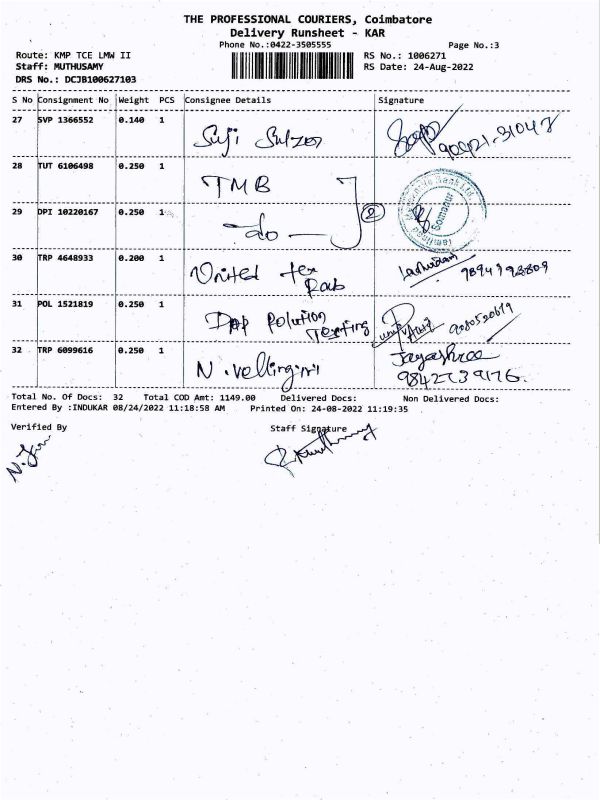 THE PROFESSIONAL COURIERS, Coimbatore
Delivery Runsheet - KAR
Phone No.:0422-3505555 Page No.:3
Route: KMP TCE LMW II RS No.: 1006271
Staff: MUTHUSAMY RS Date: 24-Aug-2022
DRS No.: DCJB100627103
S No Consignment No Weight PCS Consignee Details Signature
27 SVP 1366552 0.140 1 Suji Sulzer
28 TUT 6106498 0.250 1 TMB
29 DPI 10220167 0.250 1 -do- 2
30 TRP 4648933 0.200 1 United tex Fab
31 POL 1521819 0.250 1 Polution Testing
32 TRP 6099616 0.250 1 N. Jayashree
9842739176
Total No. Of Docs: 32 Total COD Amt: 1149.00 Delivered Docs: Non Delivered Docs:
Entered By :INDUKAR 08/24/2022 11:18:58 AM Printed On: 24-08-2022 11:19:35
Verified By Staff Signature